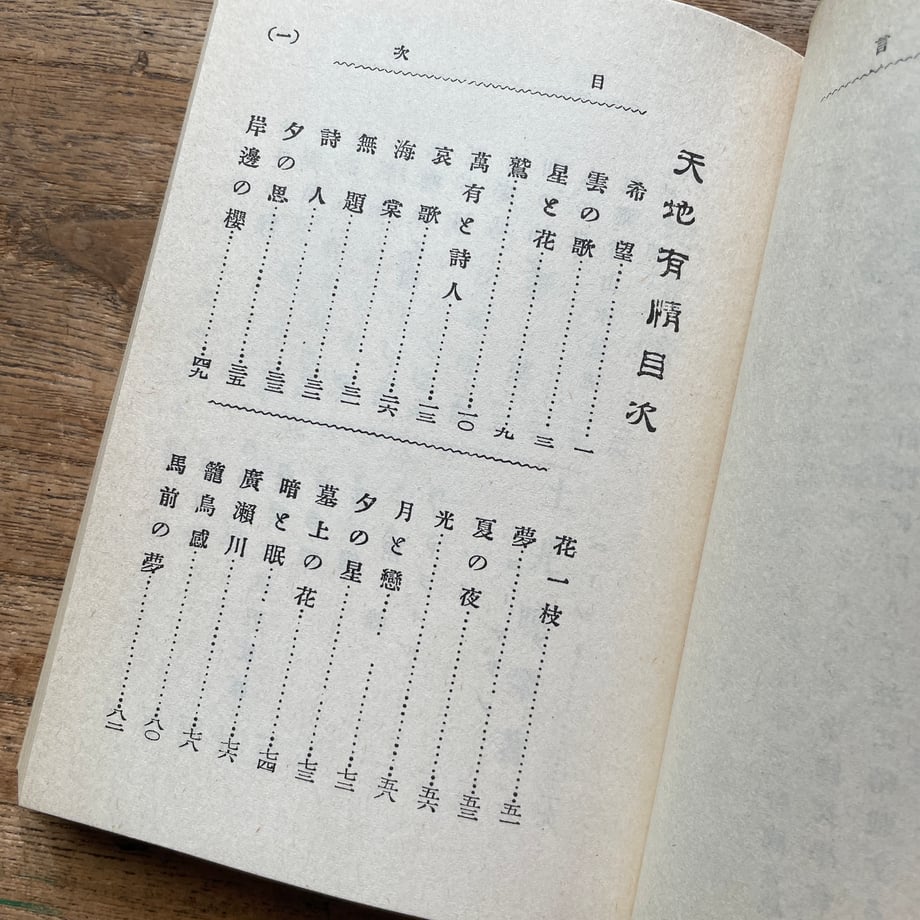 言
目次
(一)
天地有情目次
希望……一
雲の歌……三
星と花……九
鷲……一〇
萬有と詩人……一三
哀歌……二六
海棠……三一
無題……三二
詩人……三三
夕の思……三五
岸邊の櫻……四九
花一枝……五一
夢……五三
夏の夜……五六
光……五八
月と戀……七二
夕の星……七三
墓上の花……七四
暗と眠……七六
廣瀬川……七八
籠鳥感……八〇
馬前の夢……八二